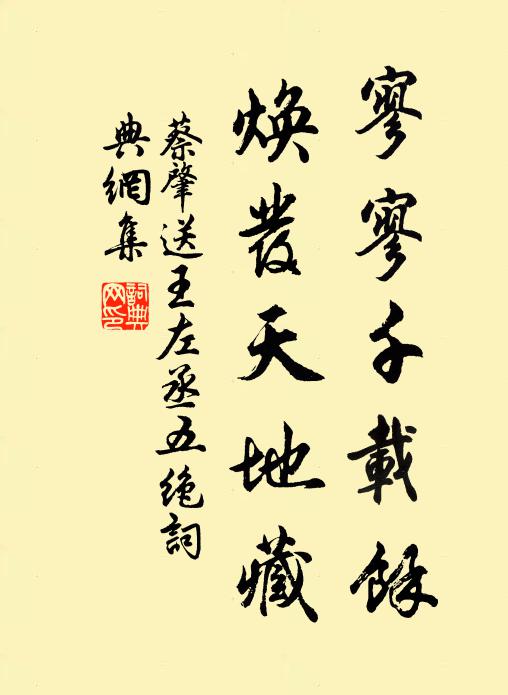 寥寥千載餘
煥發天地藏
蔡肇送王左丞五絶詞
典網集
詞典網印